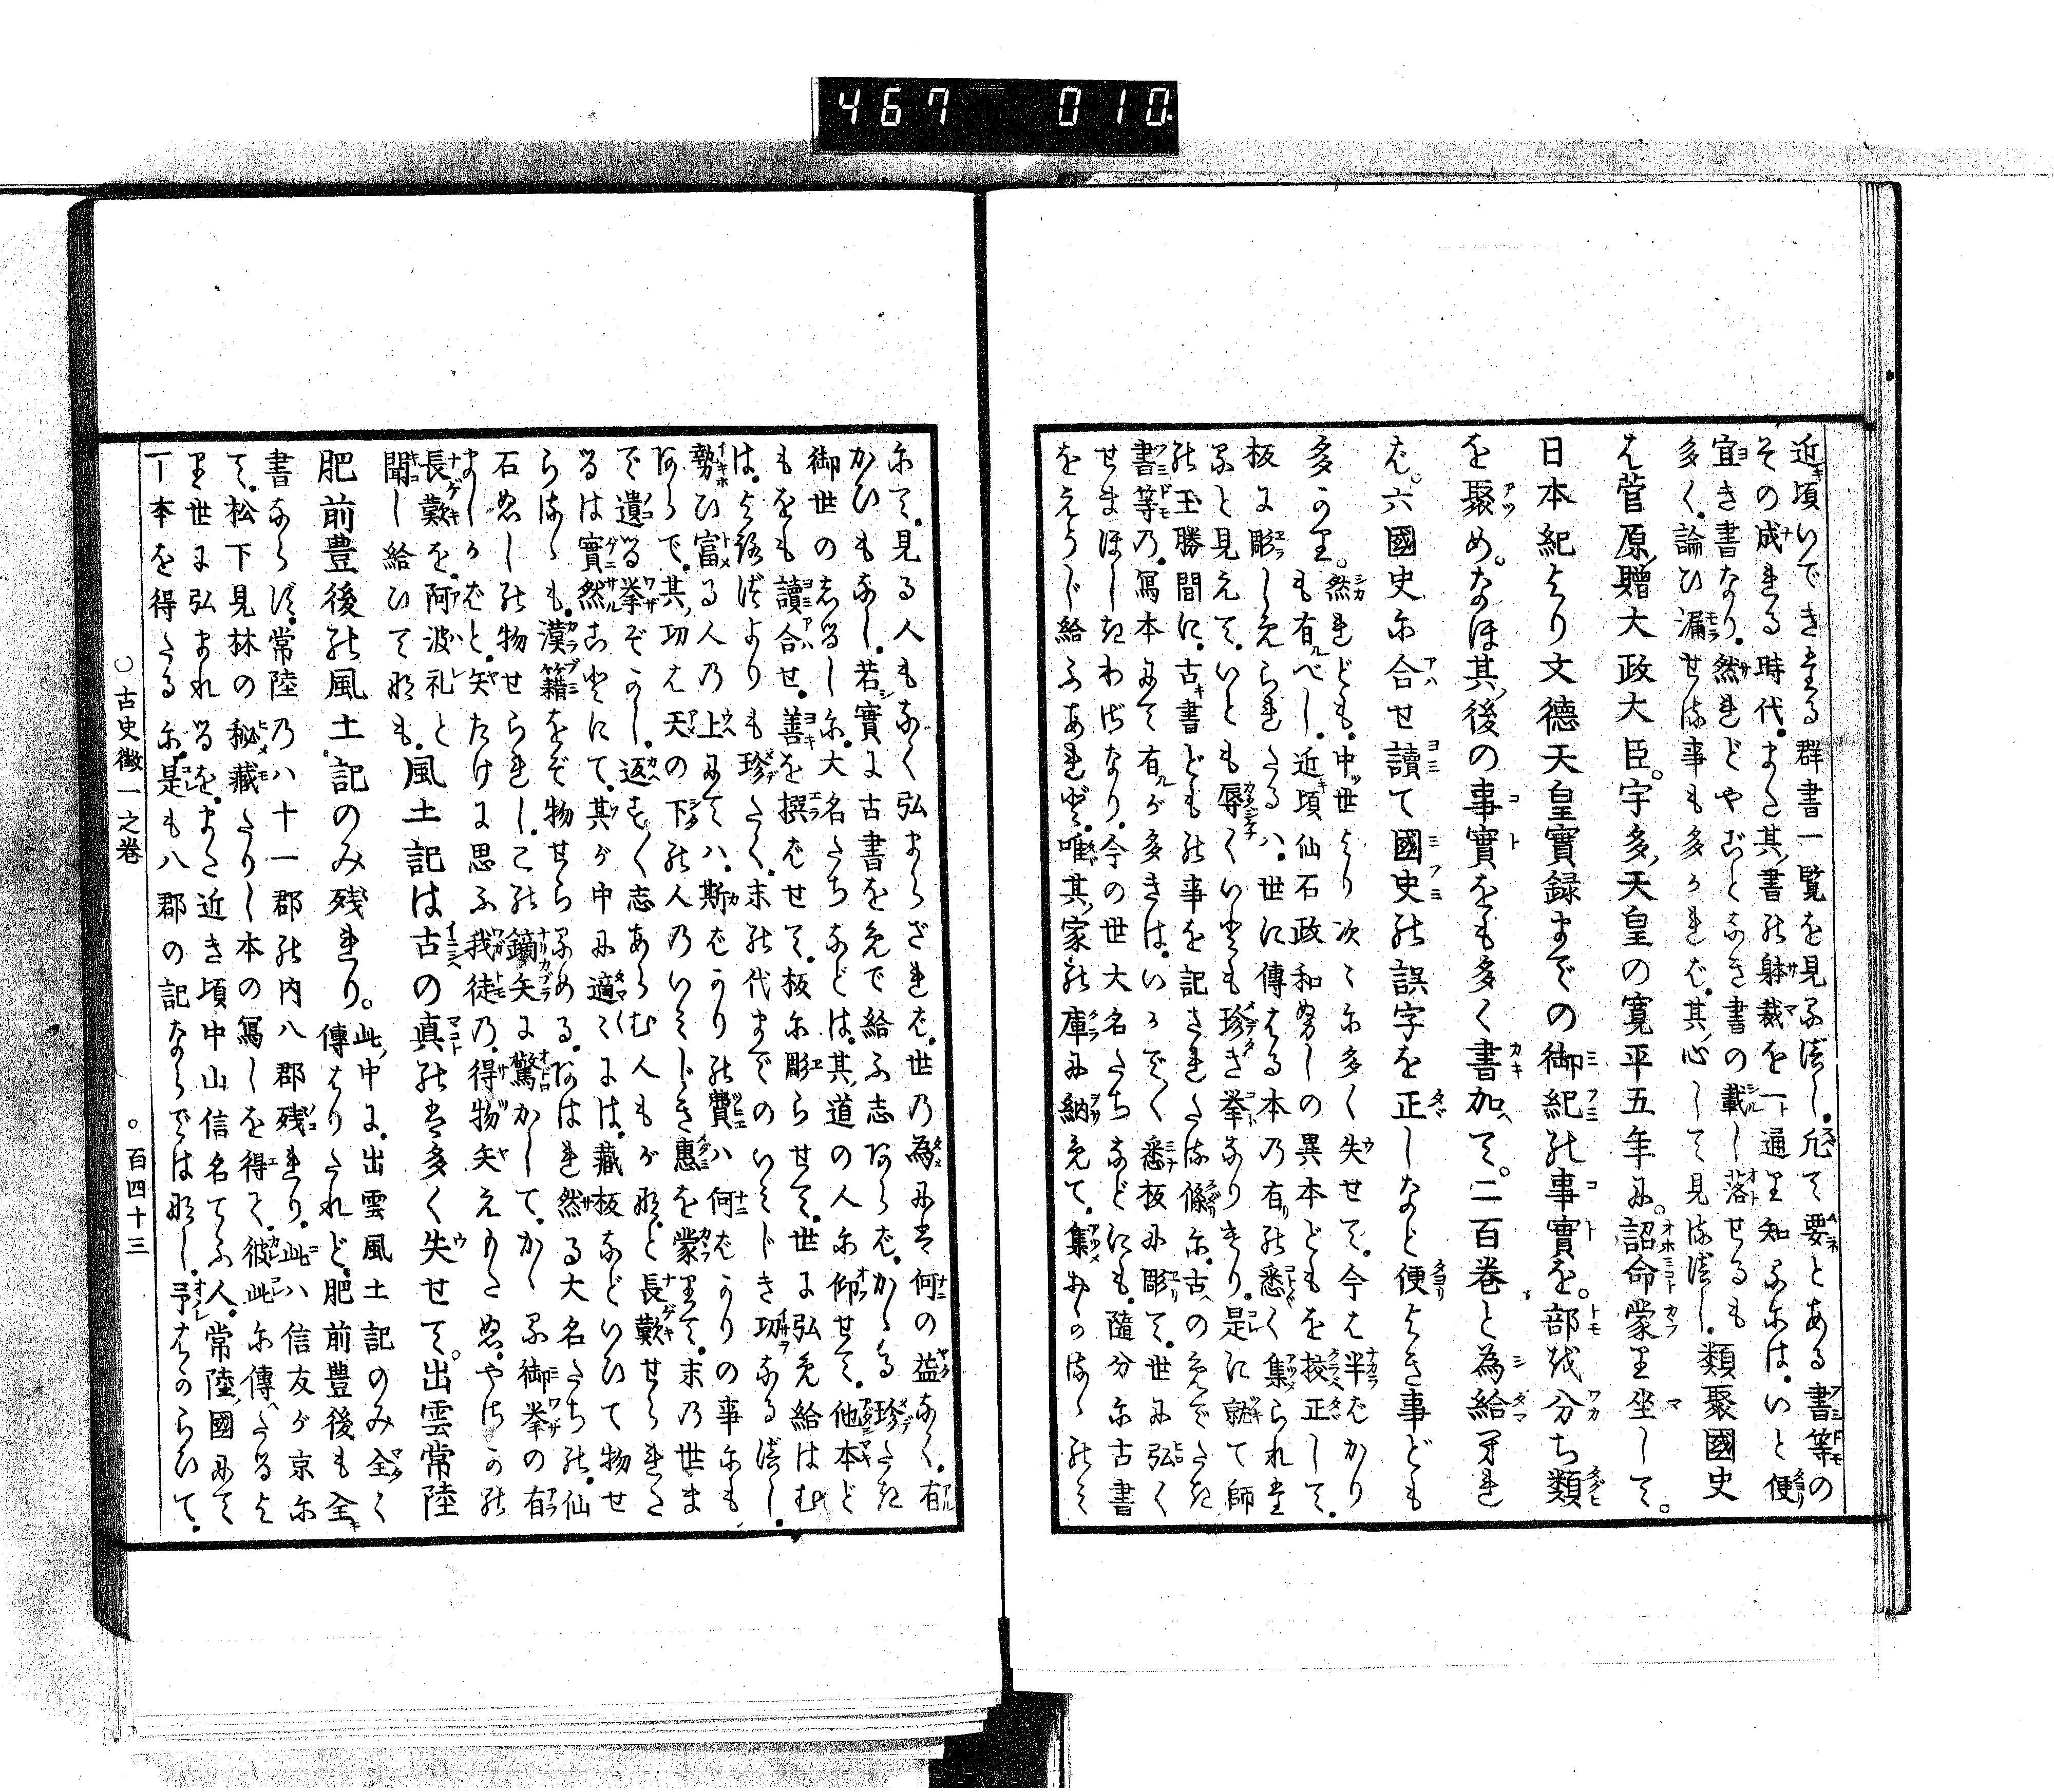 467 010
近頃いできたる群書一覧を見るべし。凡て要とある書等の
その成れる時代。また其書の躰裁を一ト通り知るには。いと便
宜き書なり。然れどやごとなき書の載し落せるも
多く。論ひ漏せる事も多かれば。其心して見るべし。類聚國史
は菅原贈大政大臣。宇多天皇の寛平五年に。詔命蒙り坐して。
日本紀より文徳天皇實録までの御紀の事實を。部を分ち類
を聚め。なほ其後の事實をも多く書加て。二百巻と為給へれ
ば。六國史に合せ讀て國史の誤字を正しなど便よき事ども
多かり。然れども。中世より次々に多く失せて。今は半ばかり
も有べし。近頃仙石政和ぬしの異本どもを挍正して。
板に彫しめられたるハ。世に傳はる本の有の悉く集られた
ると見えて。いとも辱くいとも珍き挙なりけり。是に就て師
の玉勝間に。古書どもの事を記されたる條に。古の めでたき
書等の。寫本にて有が多きは。いかでく悉板に彫て。世に弘く
せまほしきわざなり。今の世大名たちなどにも。隨分に古書
をえうじ給ふあれど。唯其家の庫に納めて。集おかるゝのミ
にて。見る人もなく弘まらざれば。世の為には何の益なく。有
かひもなし。若實に古書をめで給ふ志あらば。かゝる珍たき
御世のしるしに。大名たちなどは。其道の人に仰せて。他本ど
もをも讀合せ。善を撰ばせて。板に彫らせて。世に弘め給はむ
は。よろづよりも珍たく。末の代までのいミじき功なるべし。
勢ひ富る人の上にてハ。斯ばかりの費ハ何ばかりの事にも
あらで。其功は天の下の人のいミじき惠を蒙りて。末の世ま
で遺る挙ぞかし。返すく志あらむ人もがなと長歎せられた
るは實然ることにて。其が中に適々には。藏板などいひて物せ
らるゝも。漢籍をぞ物せらるめる。あはれ然る大名たちの。仙
石ぬしの物せられし。この鏑矢に驚かして。かゝる御挙の有
ましかばと。矢たけに思ふ我徒の。得物矢えもたぬ。やちかの
長歎を。阿波礼と
聞し給ひてなも。風土記は古の真の は多く失せて。出雲常陸
肥前豊後の風土記のみ残れり。此中に。出雲風土記のみ全く
傳はりたれど。肥前豊後も全き
書ならず。常陸の八十一郡の内八郡残れり。此ハ信友が京に
て。松下見林の秘藏たりし本の寫しを得て。彼此に傳へたるよ
り世に弘まれるを。また近き頃中山信名てふ人。常陸國にて
一本を得たるに。是も八郡の記ならでは無し。予はかのらひて。
○古史徴一之巻
○百四十三